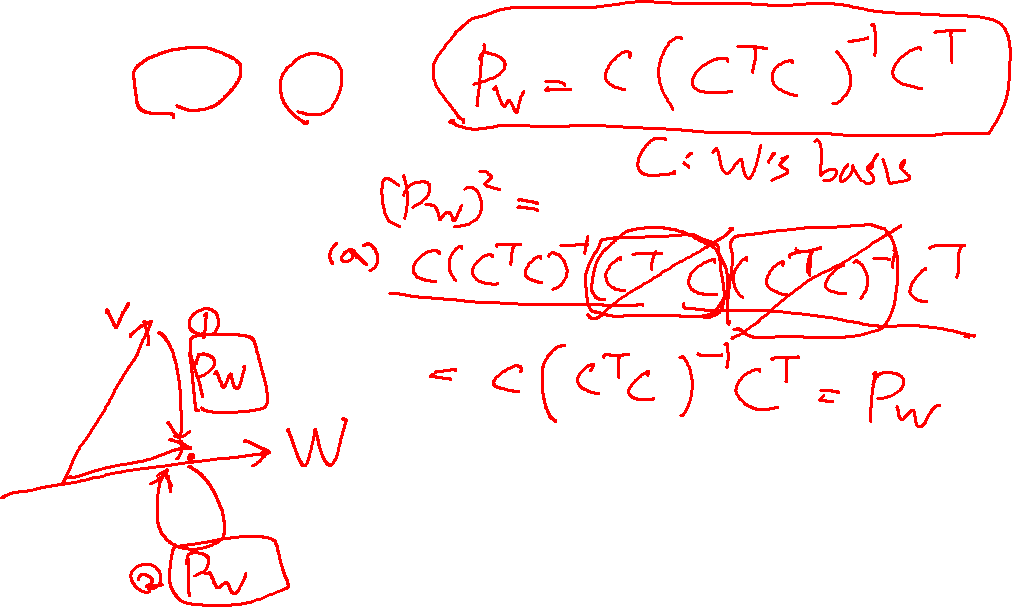 P_W = C (C^T C)^{-1} C^T
C: W's basis
(P_W)^2 =
(a) C(C^T C)^{-1} C^T C (C^T C)^{-1} C^T
= C (C^T C)^{-1} C^T = P_W
① P_W
V
W
② P_W